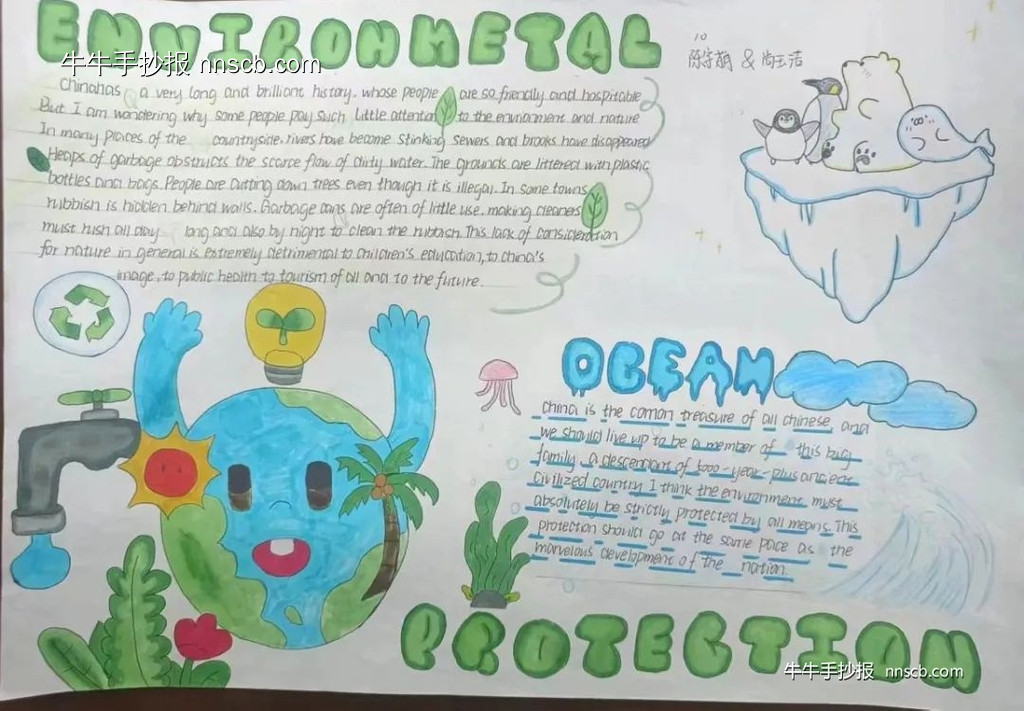 ENVIRONMETAL
牛牛手抄报 nnscb.com
10
& 
Chinahas a very long and brilliant history. whose people are so friendly and hospitable
But I am wandering why some people pay such little attention to the environment and nature
In many places of the countryside. rivers have become stinking sewers and brooks have disappeared
Heaps of garbage obstructs the scarce flow of dirty water. The grounds are littered with plastic
bottles and bags. People are cutting down trees even though it is illegal. In some towns
rubbish is hidden behind walls. Garbage cans are often of little use. making cleaners
must rush all day long and also by night to clean the rubbish. This lack of consideration
for nature in general is extremely detrimental to children's education, to china's
image, to public health to tourism of all and to the future.
OCEAN
China is the comon treasure of all chinese, and
we should live up to be a member of this big
family, a descendant of 5000-year-plus ancient
civilized country I think the environment must
absolutely be strictly protected by all means. This
protection should go at the same pace as the
marvelous development of the nation.
PROTECTION
牛牛手抄报 nnscb.com